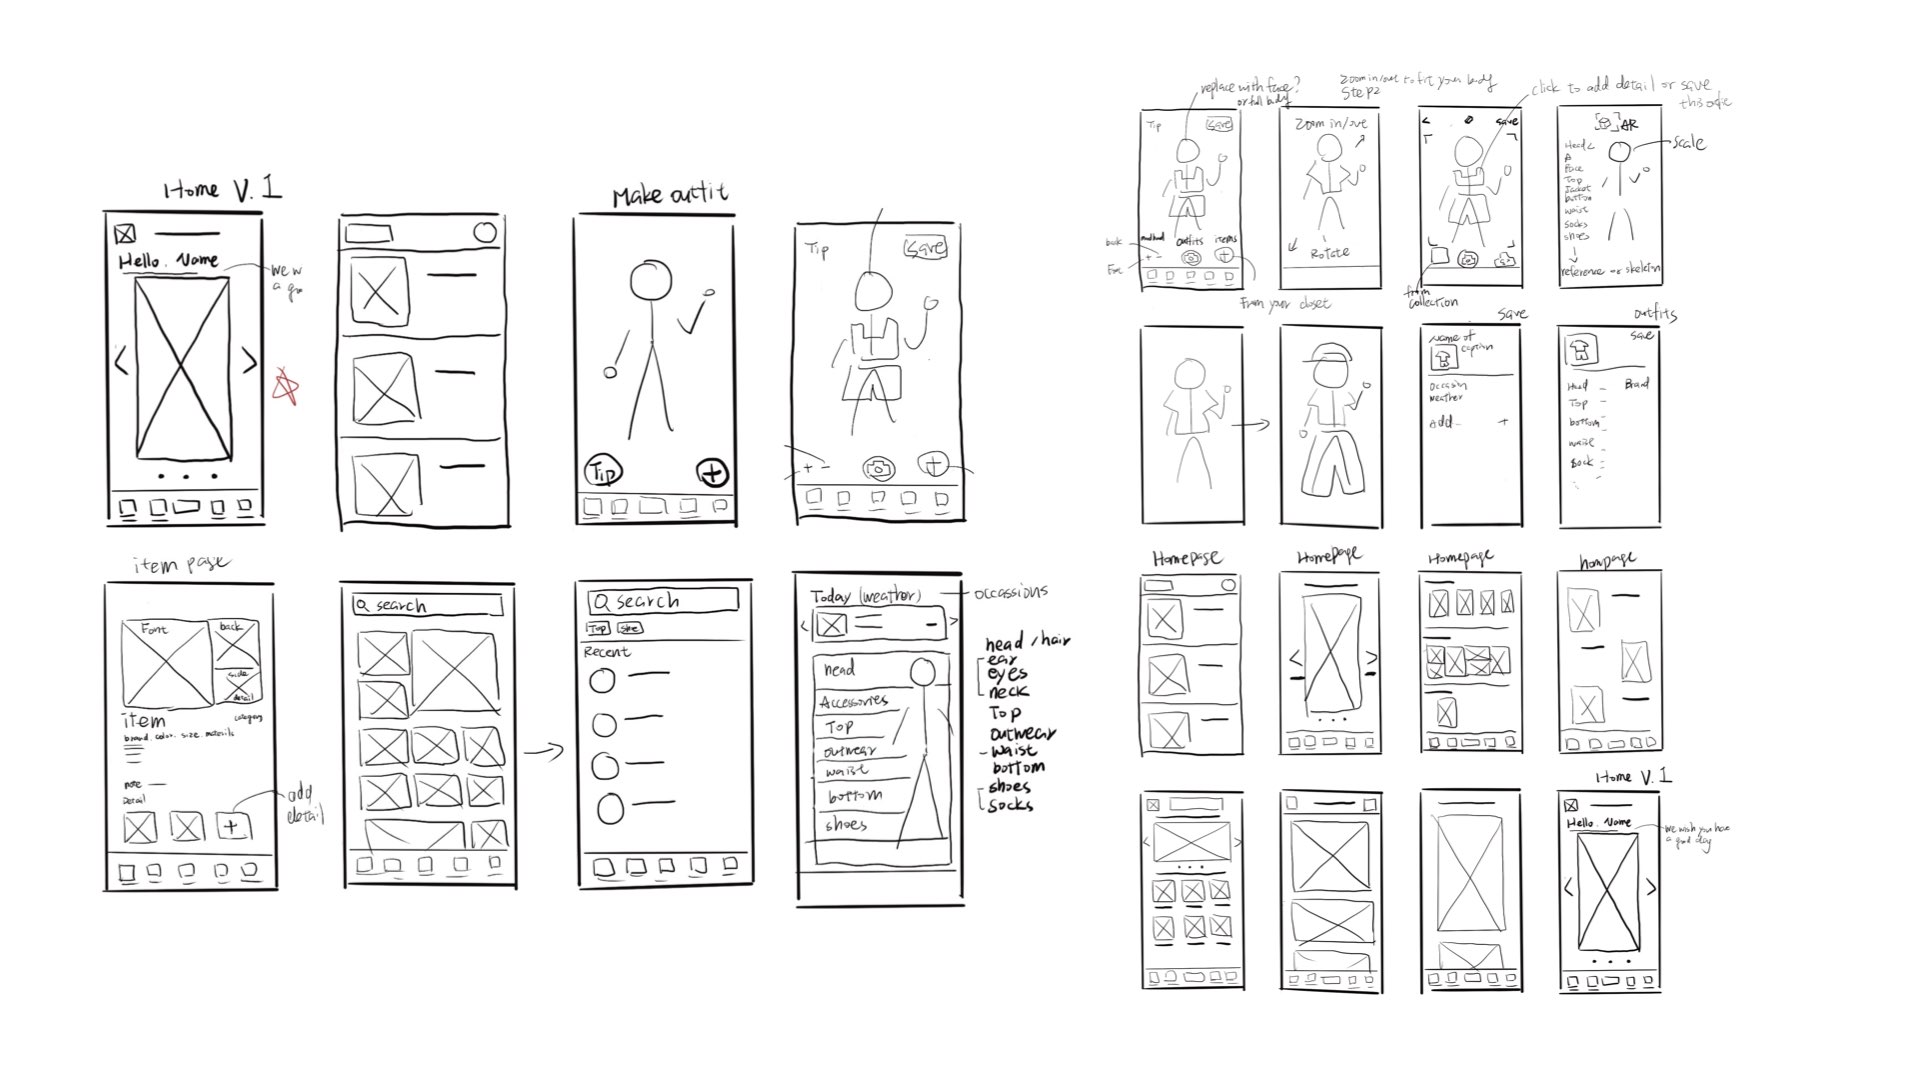 Home V.1
Hello. Name
we w
a go
Make outfit
Tip
Tip
Save
item page
Font
back
side
detail
item
category
brand. color. size. materials
note
Detail
add
detail
search
search
Top
Recent
Today (weather)
occassions
head
Accessories
Top
outwear
waist
bottom
shoes
head / hair
ear
eyes
neck
Top
outwear
waist
bottom
shoes
socks
replace with face?
or full body
Tip
Save
outfits
items
back
From your closet
Zoom in/out to fit your body
Step2
Zoom in/out
Rotate
click to add detail or save
this outfit
save
from
collection
AR
Head
Face
Top
Jacket
bottom
waist
socks
shoes
scale
reference or skeleton
save
Name of
caption
occasion
weather
Add
outfits
save
Head
Brand
Top
bottom
waist
Sock
Homepage
Homepage
Homepage
hompage
Home V.1
Hello. Name
we wish you have
a good day